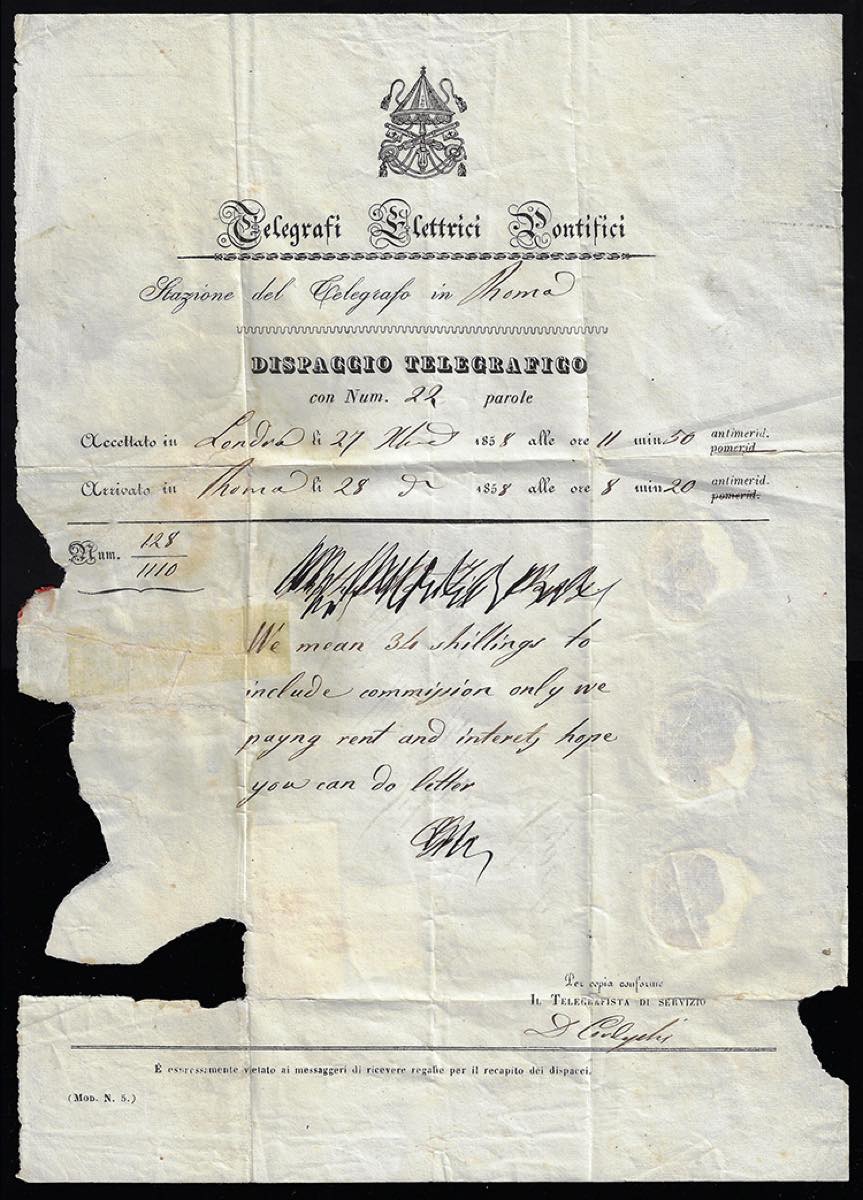 Telegrafi Elettrici Pontifici
Stazione del Telegrafo in Roma
DISPACCIO TELEGRAFICO
con Num. 22 parole
Accettato in Londra li 27 1858 alle ore 11 min 50 antimerid. pomerid.
Arrivato in Roma li 28 1858 alle ore 8 min 20 antimerid. pomerid.
Num. 128
1110
We mean 34 shillings to
include commission only we
payng rent and interets, hope
you can do letter
Per copia conforme
IL TELEGRAFISTA DI SERVIZIO
È espressamente vietato ai messaggeri di ricevere regalie per il recapito dei dispacci.
(MOD. N. 5.)